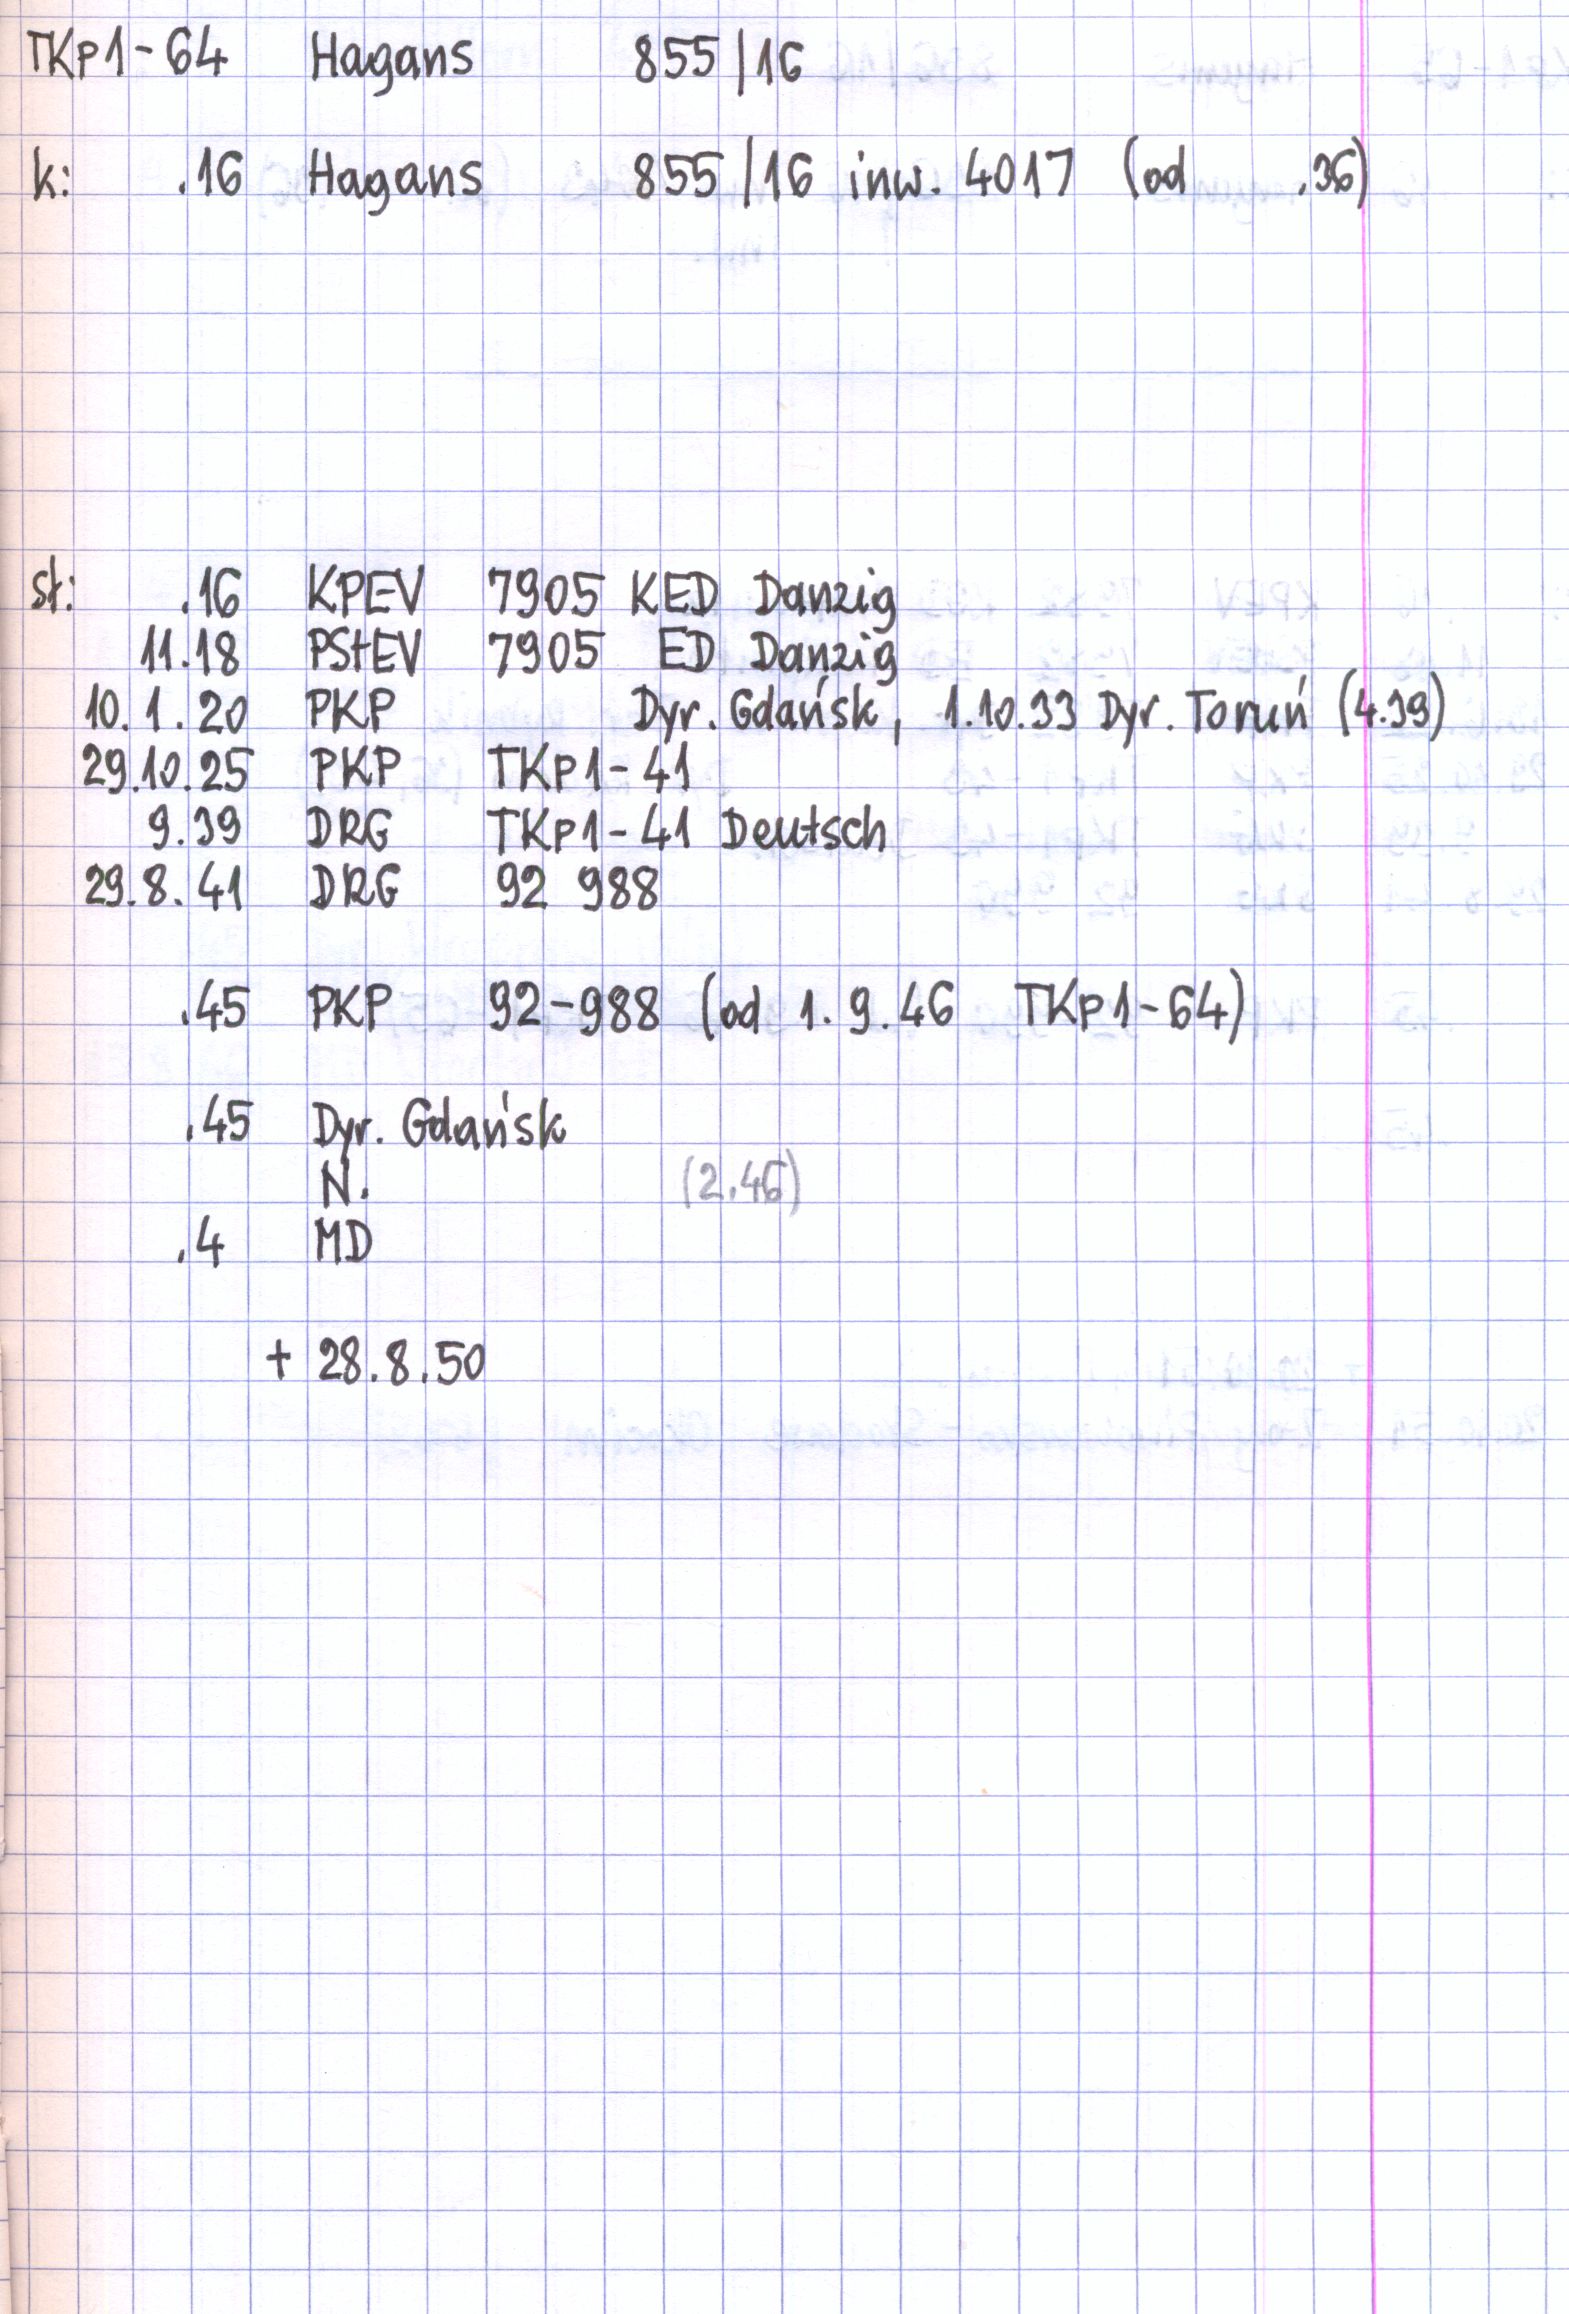 TKp1-64 Hagans 855/16
k: .16 Hagans 855/16 inw. 4017 (od .36)
st: .16 KPEV 7905 KED Danzig
11.18 PStEV 7905 ED Danzig
10.1.20 PKP Dyr. Gdańsk, 1.10.33 Dyr. Toruń (4.39)
29.10.25 PKP TKp1-41
9.39 DRG TKp1-41 Deutsch
29.8.41 DRG 92 988
.45 PKP 92-988 (od 1.9.46 TKp1-64)
.45 Dyr. Gdańsk
N. (2.46)
.4 MD
+ 28.8.50